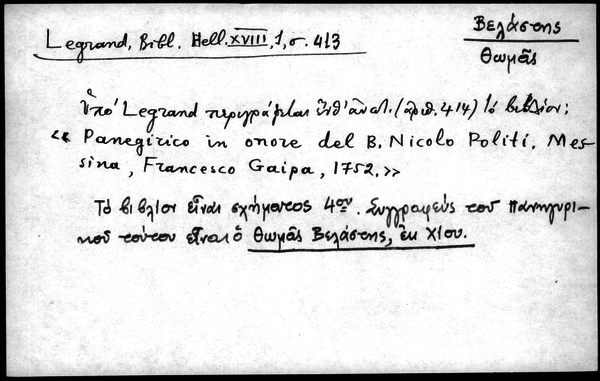 Βελάστης
Θωμᾶς
Legrand, Bibl. Hell. XVIII, 1, σ. 413
Ὑπὸ Legrand περιγράφεται (ἀριθ. 414) τὸ βιβλίον:
«Panegirico in onore del B. Nicolo Politi. Mes-
sina, Francesco Gaipa, 1752.»
Τὸ βιβλίον εἶναι σχήματος 4ου. Συγγραφεὺς τοῦ πανηγυρι-
κοῦ τούτου εἶναι ὁ Θωμᾶς Βελάστης, ἐκ Χίου.